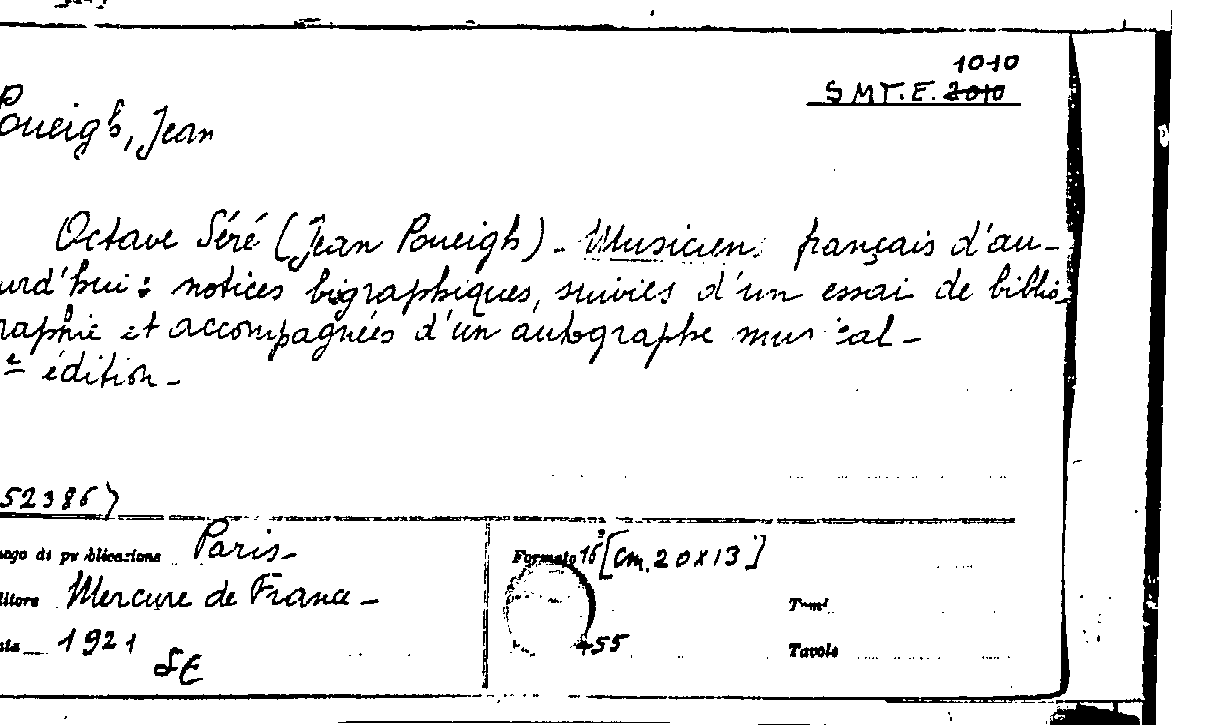 1010
S MT. E. 2010
Poueigh, Jean
Octave Séré (Jean Poueigh) - Musiciens français d'au-
urd'hui : notices biographiques, suivies d'un essai de biblio-
raphie et accompagnées d'un autographe musical -
e édition -
52386)
uogo di pubblicazione Paris -
Formato 16° [cm. 20 x 13]
ditore Mercure de France -
Tomi
ata 1921
455
Tavole